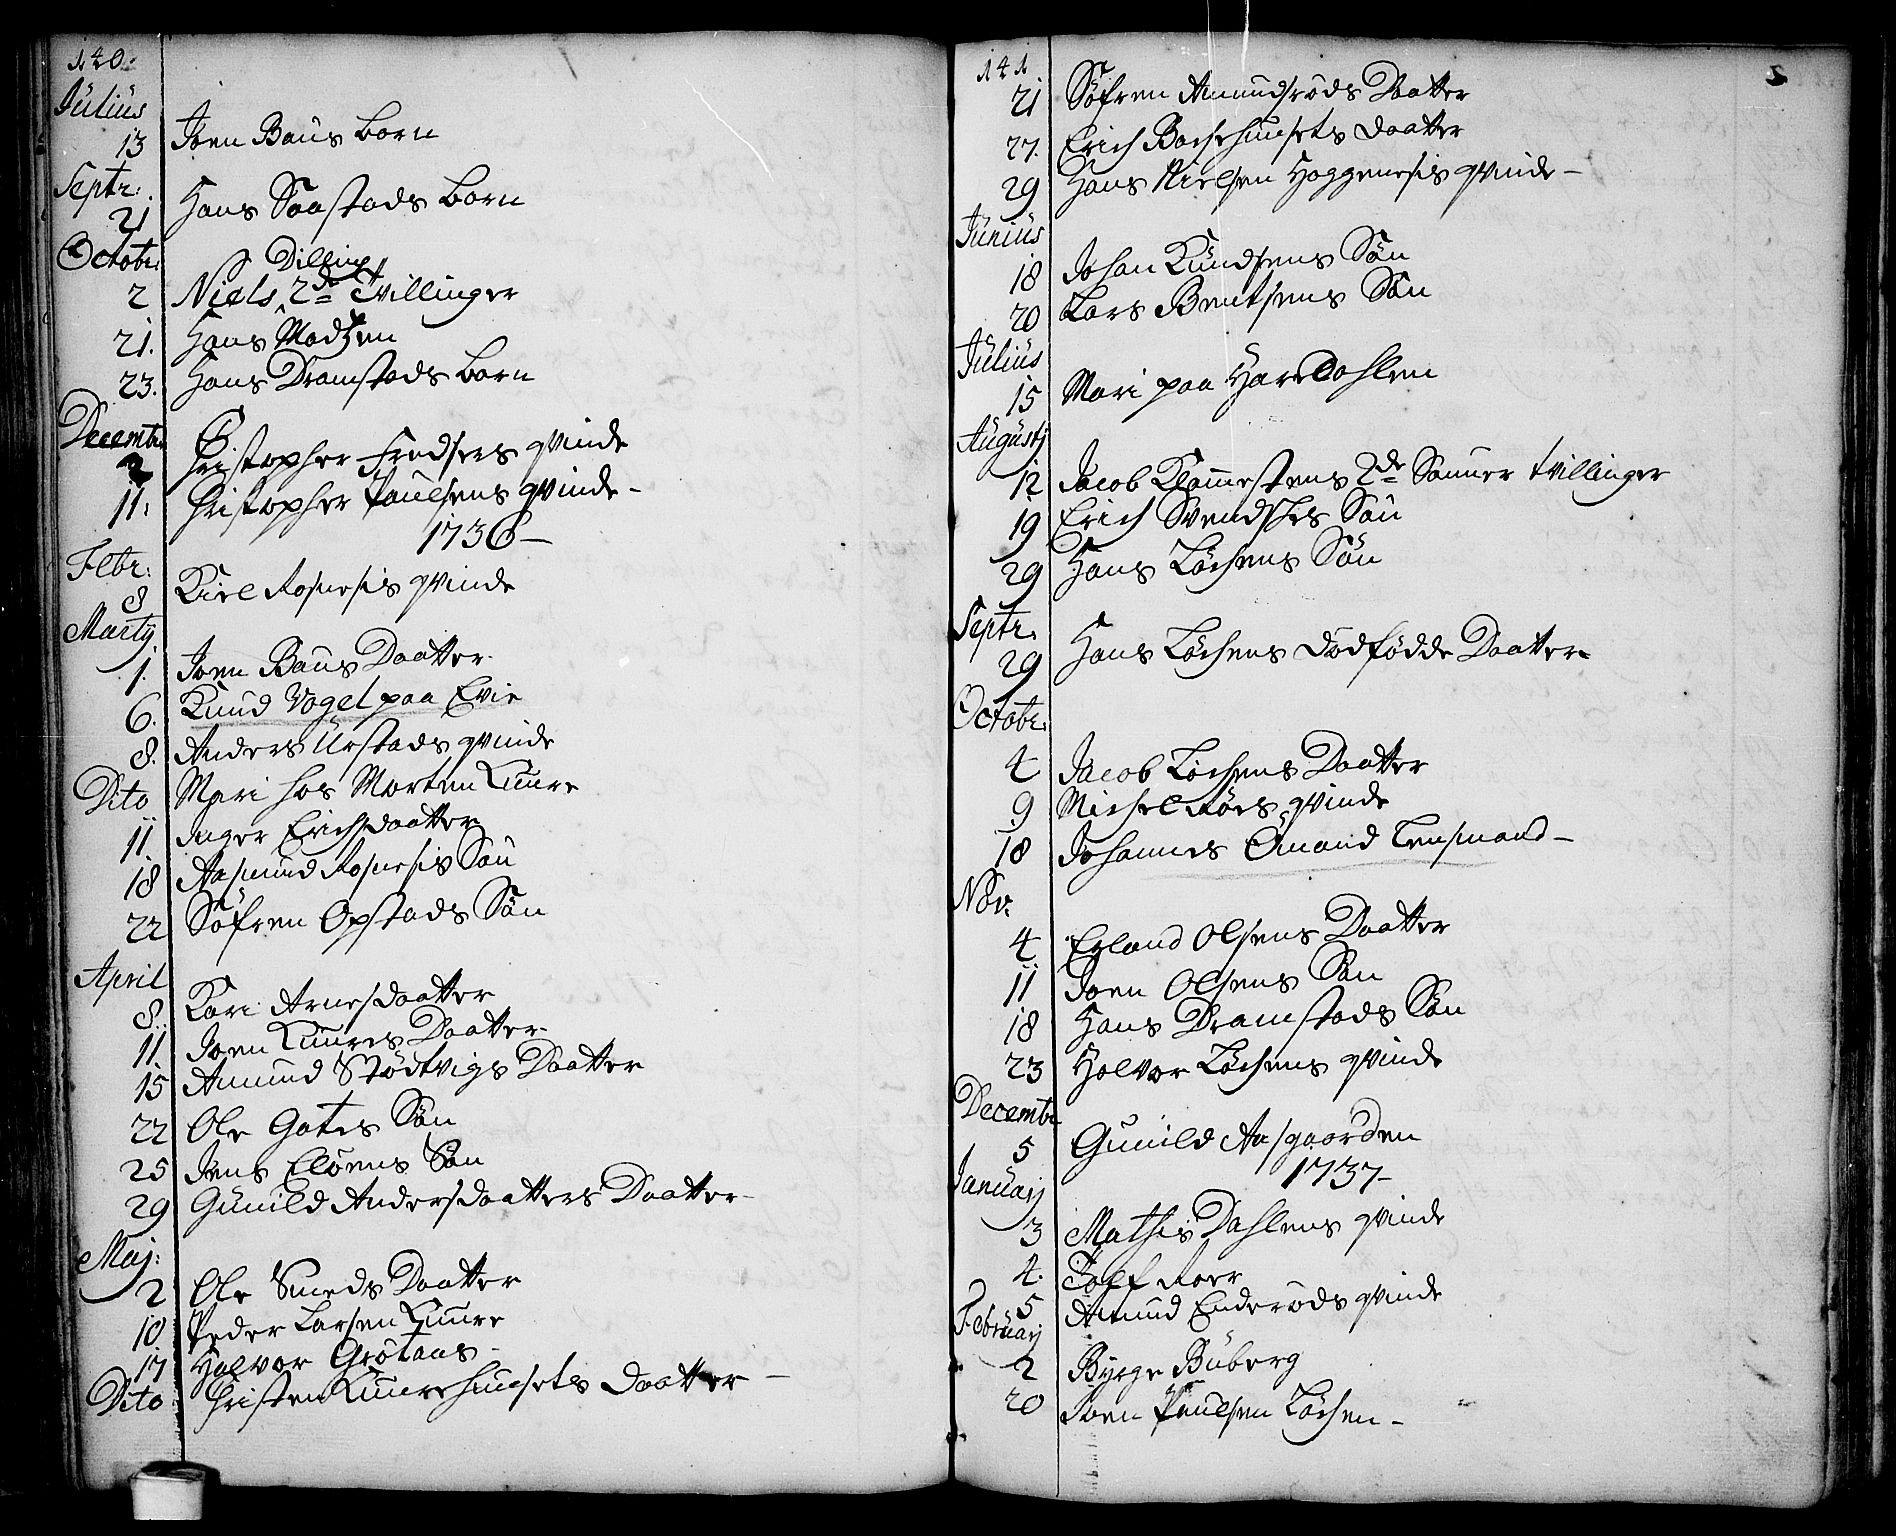 140.
Julius
13 Joen Baüs barn
Septr:
21 Hans Saastads barn
Octobr:
Dilling
2 Niels 2de Tvillinger
21. Hans Madsen
23. Hans Dramstads barn
Decembr
2 Christopher Fredsers qvinde
11: Christopher Paulsens qvinde-
1736-
Febr:
8 Kiel Rosnesis qvinde
Martij
1. Joen Baüs Daatter
6. Knud Vogel paa Evie
8. Anders Urstads qvinde
Dito Mari hos Morten Kuure
11 Inger Erichsdaatter
18 Aasmund Rosnesis Søn
22 Søfren Opstads Søn
April
8. Kari Arnesdaatter
11. Joen Kuures Daatter
15 Amund Stødtvigs Daatter
22 Ole Gates Søn
25 Jens Eløens Søn
29 Gunild Andersdaatters Daatter-
Maj:
2 Ole Smeds Daatter
10 Peder Larsen Kuure
17 Halvor Grøtaas-
Dito Christen Kuurehusets daatter -
141
21 Søfren Amundrøds Daatter
27. Erich Bachehusets daatter
29 Hans Nielsen Hoggenesis qvinde-
Junius
18 Johan Knudsens Søn
20 Lars Bentsens Søn
Julius
15 Mari paa Haredahlen
Augustj
12 Jacob Klommestens 2de Sønner tvillinger
19 Erich Svendskes Søn
29 Hans Løchens Søn
Septr.
29 Hans Løchens dødfødde Daatter
Octobr:
4 Jacob Løchens Daatter
9 Michel Røes qvinde
18 Johannes Omand Lensmand-
Nov:
4 Erland Olsens Daatter
11 Joen Olsens Søn
18 Hans Dramstads Søn
23 Halvor Løchens qvinde
Decembr
5 Gunild Aasgaarden
1737-
Januarj
3 Mathis Dahlens qvinde
4. Tolf Roer
5 Amund Enderøds qvinde
Februarj
2 Byrge Buberg
20 Joen Paulsen Løchen-